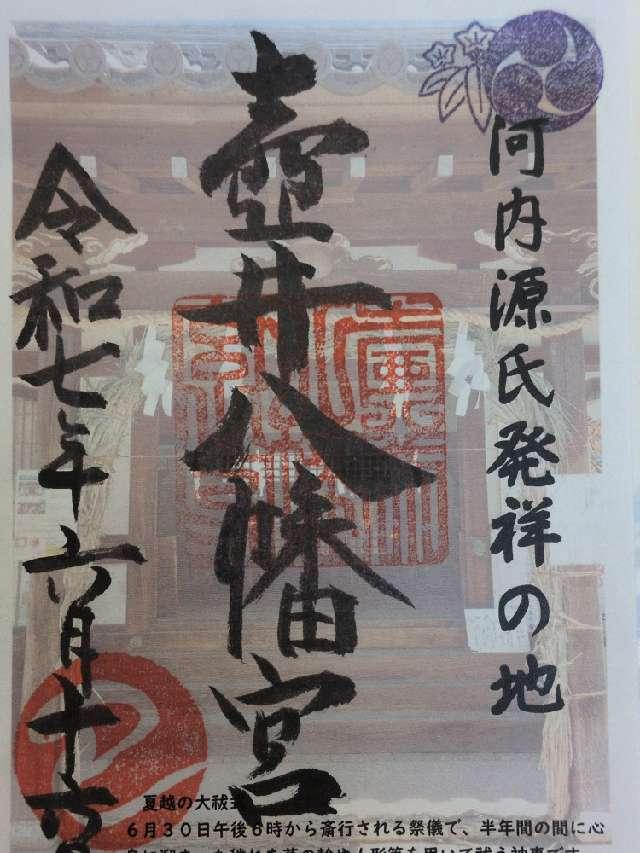 河内源氏発祥の地
壺井八幡宮
令和七年六月十六日
夏越の大祓
6月30日午後6時から斎行される祭儀で、半年間の間に心